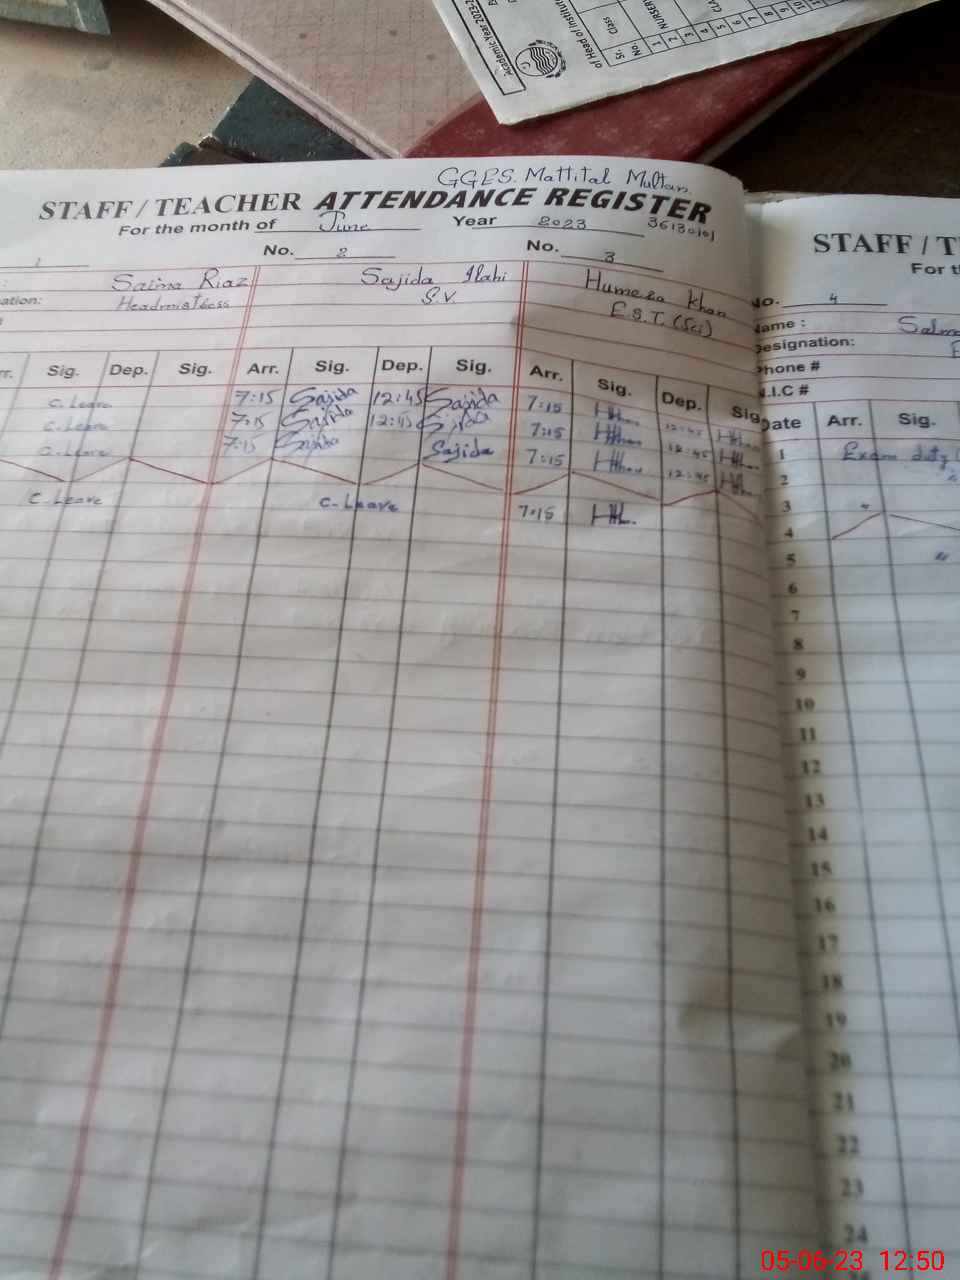 Academic Year 2023-2
of Head of Institut
Sr. No.
Class
1 NURSERY
2
3
4
5
6
7
8
9
10
GGES. Mattital Multan
STAFF / TEACHER ATTENDANCE REGISTER
For the month of June Year 2023 36130101
1 No. 2 No. 3
Saima Riaz Sajida Ilahi Humera Khan
ation: Headmistress S.V E.S.T. (Sci)
Sig. Dep. Sig. Arr. Sig. Dep. Sig. Arr. Sig. Dep. Sig.
C. Leave 7:15 Sajida 12:45 Sajida 7:15 12:45
C. Leave 7:15 Sajida 12:45 Sajida 7:15 12:45
C. Leave 7:15 Sajida Sajida 7:15 12:45
C. Leave C. Leave 7:15
STAFF / T
For th
No. 4
Name : Salma
Designation:
Phone #
N.I.C #
Date Arr. Sig.
1 Exam duty
2
3 "
4
5 "
6
7
8
9
10
11
12
13
14
15
16
17
18
19
20
21
22
23
24
05-06-23 12:50